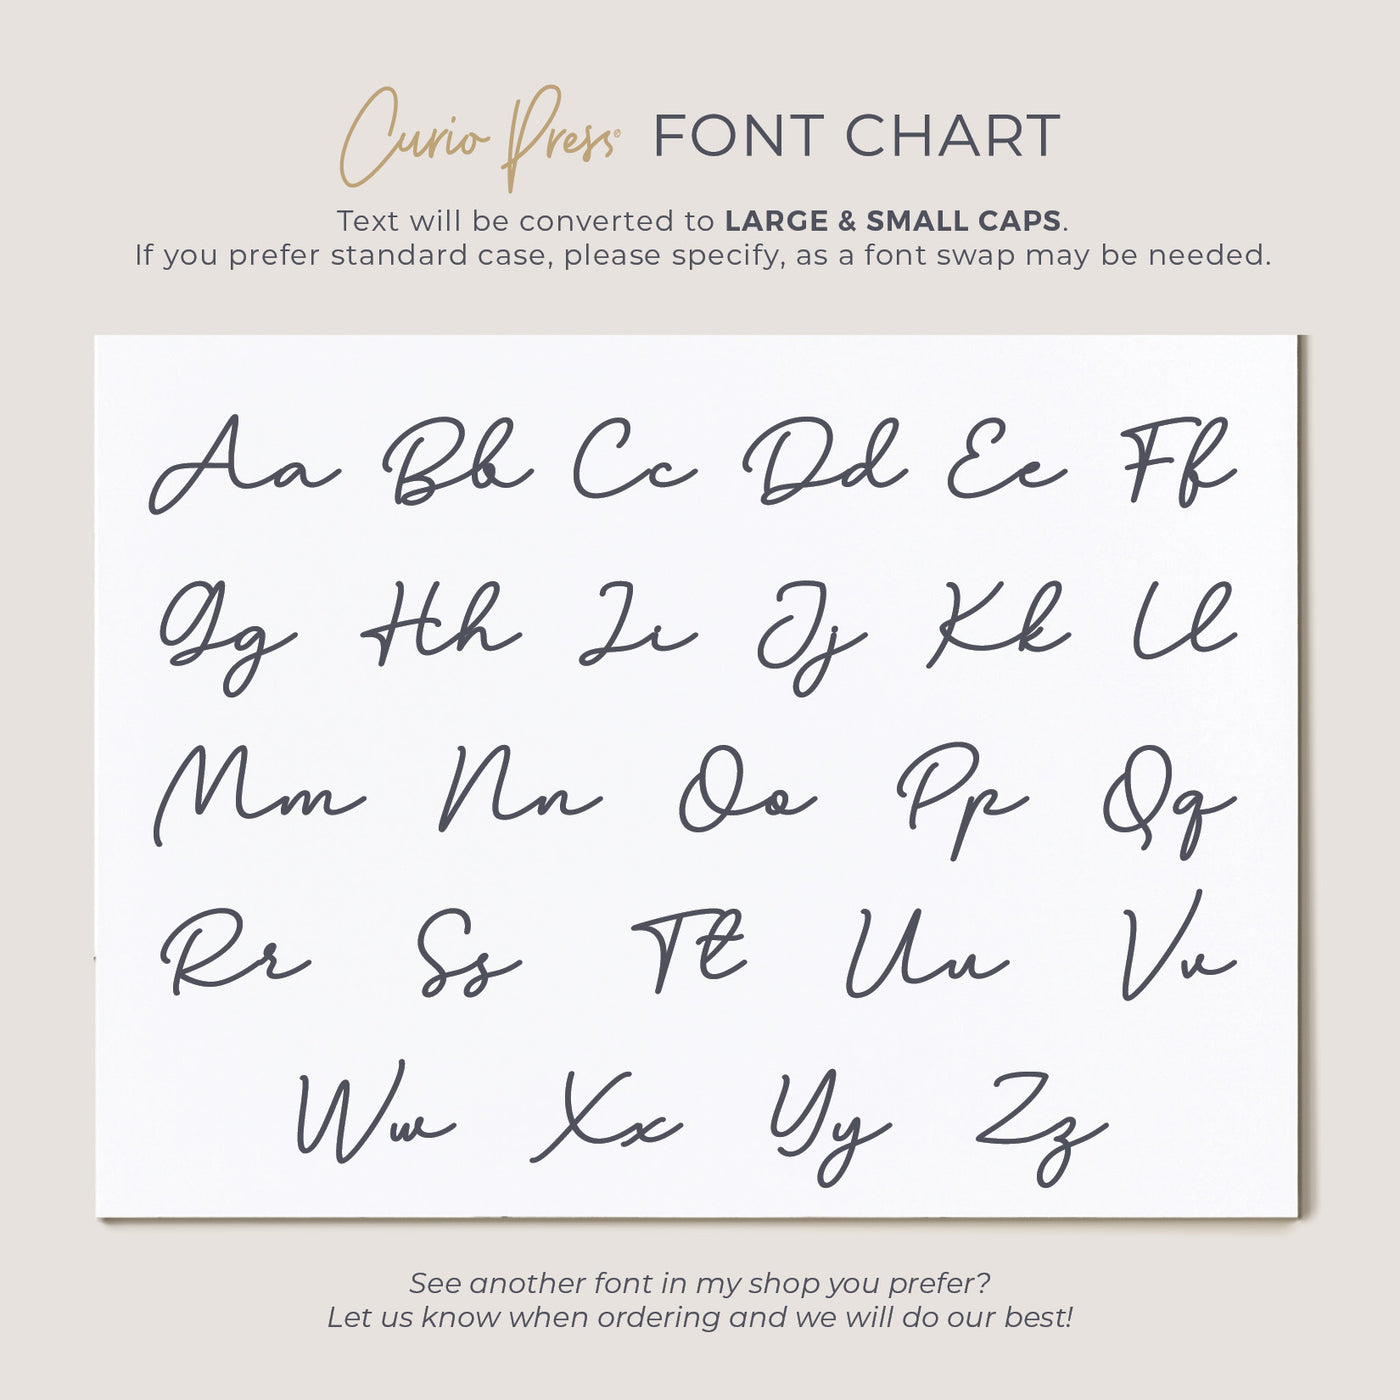 Curio Press® FONT CHART
Text will be converted to LARGE & SMALL CAPS.
If you prefer standard case, please specify, as a font swap may be needed.
Aa Bb Cc Dd Ee Ff
Gg Hh Ii Jj Kk Ll
Mm Nn Oo Pp Qq
Rr Ss Tt Uu Vv
Ww Xx Yy Zz
See another font in my shop you prefer?
Let us know when ordering and we will do our best!